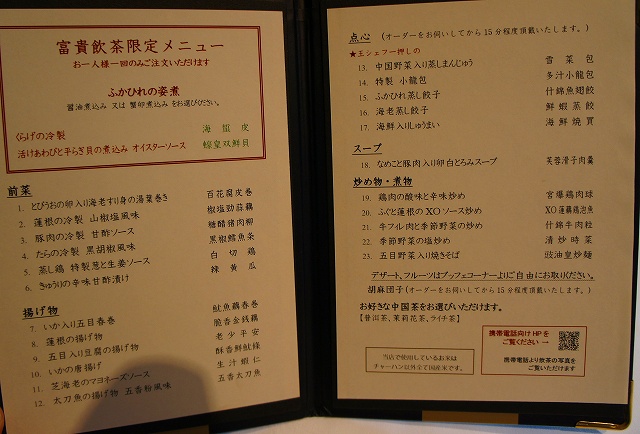 富貴飲茶限定メニュー
お一人様一回のみご注文いただけます
ふかひれの姿煮
醤油煮込み 又は 蟹卵煮込み をお選びください。
くらげの冷製 海蜇皮
活けあわびと平らぎ貝の煮込み オイスターソース 蠔皇双鮮貝
前菜
1. とびうおの卵入り海老すり身の湯葉巻き 百花腐皮巻
2. 蓮根の冷製 山椒塩風味 椒塩勁蒜藕
3. 豚肉の冷製 甘酢ソース 糖醋猪肉柳
4. たらの冷製 黒胡椒風味 黒椒鱈魚条
5. 蒸し鶏 特製葱と生姜ソース 白切鶏
6. きゅうりの辛味甘酢漬け 辣黄瓜
揚げ物
7. いか入り五目春巻 魷魚鶏春巻
8. 蓮根の揚げ物 脆香金銭藕
9. 五目入り豆腐の揚げ物 老少平安
10. いかの唐揚げ 酥香鮮魷條
11. 芝海老のマヨネーズソース 生汁蝦仁
12. 太刀魚の揚げ物 五香粉風味 五香太刀魚
点心 (オーダーをお伺いしてから15分程度頂戴いたします。)
★王シェフ一押しの
13. 中国野菜入り蒸しまんじゅう 雪菜包
14. 特製 小龍包 多汁小龍包
15. ふかひれ蒸し餃子 什錦魚翅餃
16. 海老蒸し餃子 鮮蝦蒸餃
17. 海鮮入りしゅうまい 海鮮焼買
スープ
18. なめこと豚肉入り卵白とろみスープ 芙蓉滑子肉羹
炒め物・煮物
19. 鶏肉の酸味と辛味炒め 宮爆鶏肉球
20. ふぐと蓮根のXOソース炒め XO蓮藕鶏泡魚
21. 牛フィレ肉と季節野菜の炒め 什錦牛肉粒
22. 季節野菜の塩炒め 清炒時菜
23. 五目野菜入り焼きそば 豉油皇炒麺
デザート、フルーツはブッフェコーナーよりご自由にお取りください。
胡麻団子(オーダーをお伺いしてから15分程度頂戴いたします。)
お好きな中国茶をお選びいただけます。
【普洱茶、茉莉花茶、ライチ茶】
当店で使用しているお米は
チャーハン以外全て国産米です。
携帯電話向けHPを
ご覧ください→
携帯電話より飲茶の写真を
ご覧いただけます